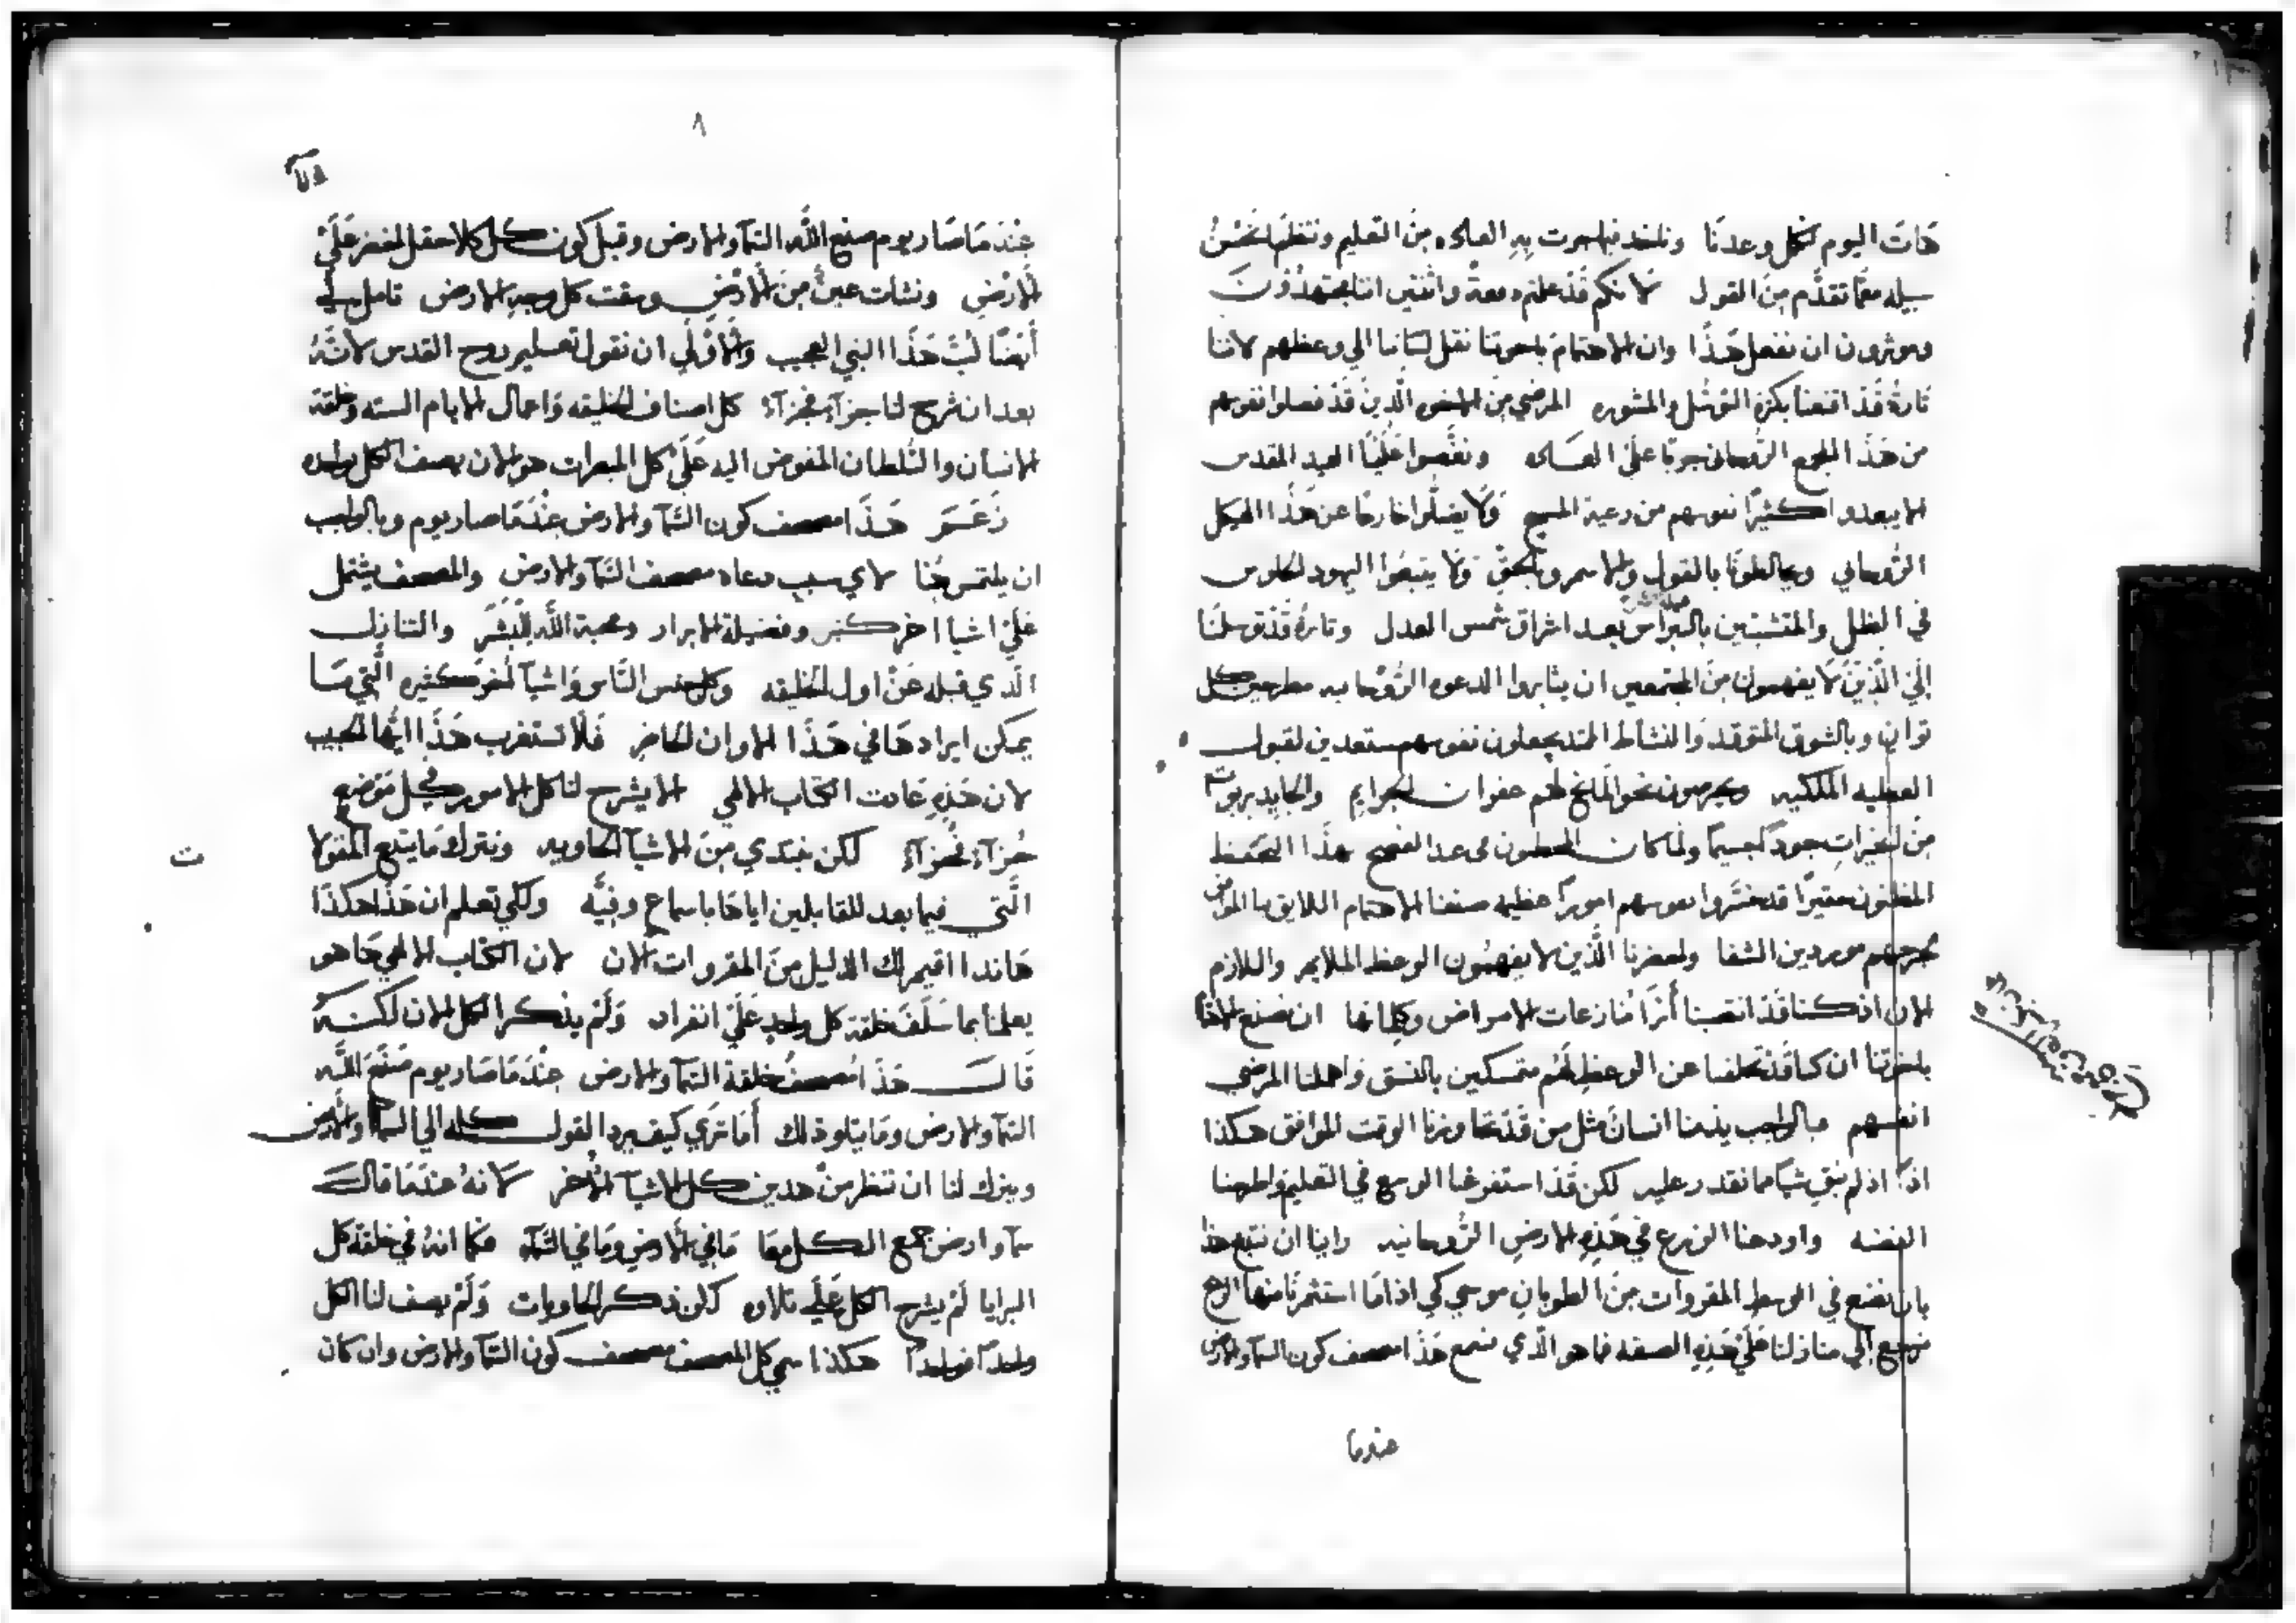 هات اليوم نكمل وعدنا وناخذ فيما جرت به العاده من التعليم وننظمه نحسن
سبيله معما تقدم من القول لانكم قد علمتم دفعة واثنتين اننا مجتهدون
وموثرون ان نفعل هذا وان الاهتمام باخوتنا نقل لساننا الي وعظهم لاننا
تارة قد اقنعنا بكثرة التوسل والمشوره المرضي من الاخوه الذين قد فصلوا نفوسهم
من هذا المجمع الروحاني جريا على العاده ونغصوا علينا العيد المقدس
الا يبعدوا كثيرا نفوسهم من رعية المسيح ولا يضلوا خارجا عن هذا الهيكل
الروحاني ويخالطونا بالقول والاسم وبالحق ولا يتبعوا اليهود الجلوس
في الظل والمتشبثين بالنبراس بعد اشراق شمس العدل وتارة قد توسلنا
الي الذين لا يفهمون من المجتمعين ان يثابروا الدعوه الروحانيه مطرحين كل
توان وبالشوق المتوقد والنشاط الممتد يجعلون نفوسهم مستعدين لقبول
العطيه الملكيه ويحرصون نحو المانح لهم غفوان الجرايم
من الخيرات جودا جسيما ولما كان هذا التحفظ
امورا عظيمه صنعنا الاهتمام اللايق بالمرضي
الشفا ولعمرنا الذين لا يفهمون الوعظ الملايم واللازم
الان اذ كنا قد انقصبنا أنزا منازعات الامراض ان نضع
باخوتنا ان كنا قد تخلفنا عن الوعظ لهم متمسكين بالنسق واهملنا المرضي
انفسهم فبالواجب يذمنا انسان مثل من قد تجاوزنا الوقت الموافق هكذا
اذا اذ لم نبق شيا مما نقدر عليه لكن قد استفرغنا الوسع في التعليم واطرحنا
الفضه واودعنا الزرع في هذه الارض الروحانيه راينا ان نتبع هذا
بان نضع في الوسط المقروات من الطوبان موسي كي اذا ما استثمرنا منها الربح
نرجع الي منازلنا علي هذه الصفه فما هو الذي نسمع هذا مصحف كون السما والارض
عندما
٨
عندما صار يوم صنع الله السما والارض وقبل كون كل كلا حقل اخضر علي
الارض ونشات عين من الارض وسقت كل وجه الارض تامل لي
أيضا لب هذا النبي العجيب والاولي ان نقول تعليم روح القدس لانه
بعد ان شرح لنا جزآء فجزآء كل اصناف الخليقه واعمال الايام السته وخلقة
الانسان والسلطان المفوض اليه على كل المبصرات هو الان يصف الكل بواحده
زعم هذا مصحف كون السما والارض عندما صار يوم وبالواجب
ان يلتمس هنا لاي سبب دعاه مصحف السما والارض والمصحف يشتمل
علي اشيا اخر كثير وفضيلة الابرار ومحبة الله للبشر والتنازل
الذي قبله عن اول الخليقه وكل جنس الناس واشيآ اخر كثيره التي ما
يمكن ايرادها في هذا الاوان الحاضر فلا تستغرب هذا ايها الحبيب
لان هذه عادت الكتاب الالهي الا يشرح لنا كل الامور كل موضع
جزآء فجزآء لكن يبتدي من الاشيآ الحاويه ونترك ما يتبع المقولا
التي فيما بعد للقابلين اياها باسماع وفيه ولكي تعلم ان هذا هكذا
هانذا اقيم لك الدليل من المقروات الان لان الكتاب الالهي ها هو
يعلمنا بما سلف خلقة كل واحد علي انفراد ولم يذكر الكل الان لكنه
قال هذا مصحف خلقة السما والارض عندما صار يوم صنع الله
السما والارض وما يتلو ذلك أما تري كيف يرد القول كله الي السما والأرض
ويترك لنا ان ننظر من هدين كل الاشيآ الأخر لانه عندما قال
سما وارض جمع الكل معا ما في الارض وما في السمآء فكما انه في خلقة كل
البرايا لم يشرح الكل علي تلاوه لكن ذكر الحاويات ولم يصف لنا الكل
واحدا فواحدا هكذا سمي كل المصحف مصحف كون السما والارض وان كان
ت